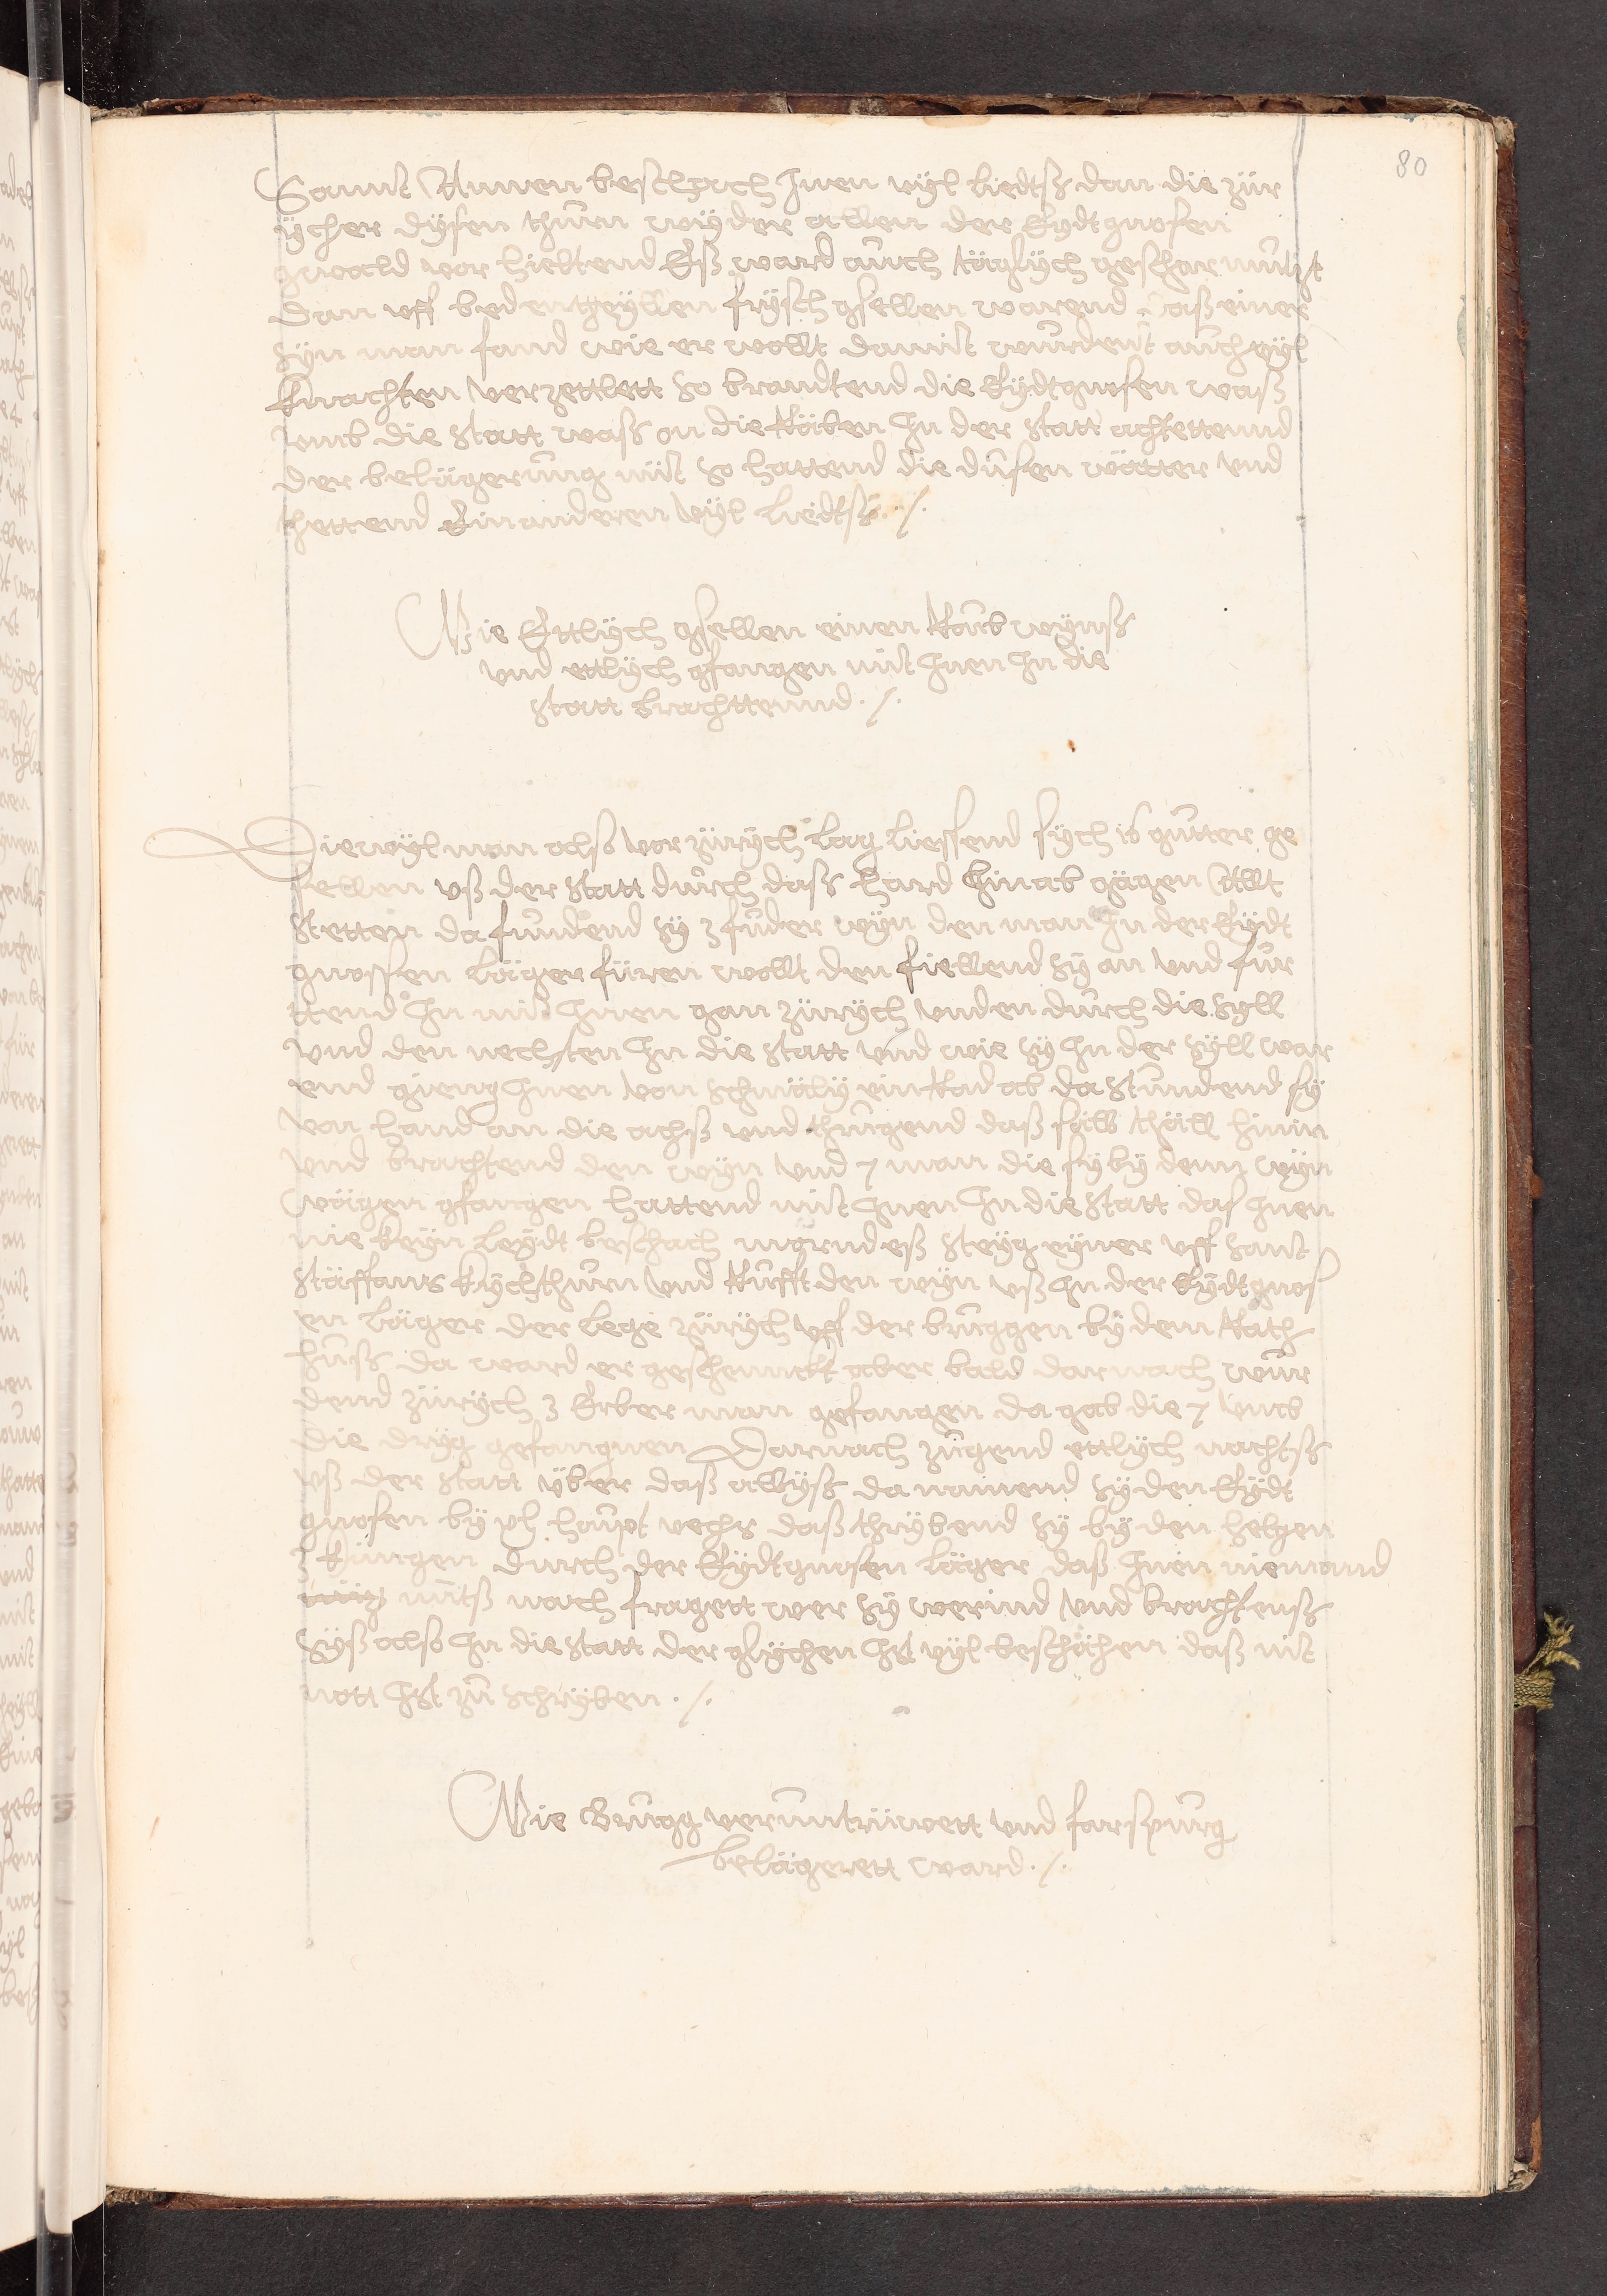 80
Sannt Annen beschach Inen vyl liedtß dan die zür
ycher dysen thurn wyder allen der Eydtgnosen
gwald vor hieltend Eß ward auch täglych gescharmützt
dan uff beden theyllen frysch gsellen warend daß einer
syn man fand wie er wollt damit wurdent auch vyl
Knachten verzettlett so brandtend die Eydtgnosen waß
umb die statt waß on die Räben In der statt achtettennd
der belägerung nüt so hattend die dusen wätter und
thettend Einanderen vyl liedtß ./.
Wie Ettlych gsellen einen Raub wynß
und ettlych gfangen mit Inen In die
statt brachttennd ./.
Diewyl man also vor zürych lag liessend sych 16 gutter ge
sellen uß der statt durch daß hard hinab gägen Allt
stetten da fundend sy 3 fuder wyn den man In der Eydt
gnossen läger füren wollt den fiellend sy an und für
ttend In mit Inen gan zürych unden durch die Syll
und den nechsten In die statt und wie sy In der Syll war
end gieng Inen von schnäly ein Rad ab da stundend sy
von hand an die achß und thrugend daß säll thäll hinin
und brachtend den wyn und 7 man die sy by dem wyn
wägen gfangen hattend mit Inen In die statt das Inen
nie keyn leydt beschach morndeß steyg eyner uff sant
stäffans kylchthurn und Rufft den wyn uß In der Eydtgnos
en läger der lege zürych uff der bruggen by dem Rath
huß da ward er geschennckt aber bald darnach wur
dend zürych 3 Erber man gefangen da gab die 7 umb
die dryg gefangnen Darnach zugend ettlych nachtß
uß der statt über daß albyß da namend sy den Eydt
gnosen by xl haupt vechs daß thrybend sy by den helgen
3 künngen durch der Eydtgnosen läger daß Inen niemand
nütß nach fragett wer sy werind und brachtenß
also In die statt der glychen Ist vyl beschähen daß nit
nott Ist zu schryben ./.
Wie Brugg veruntrüwett und farspurg
belägerett ward ./.